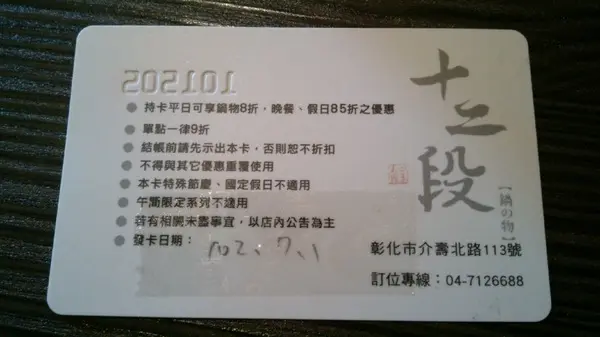 十二段
【鍋の物】
● 持卡平日可享鍋物8折，晚餐、假日85折之優惠
● 單點一律9折
● 結帳前請先示出本卡，否則恕不折扣
● 不得與其它優惠重覆使用
● 本卡特殊節慶、國定假日不適用
● 午間限定系列不適用
● 若有相關未盡事宜，以店內公告為主
● 發卡日期：102、7、1
彰化市介壽北路113號
訂位專線：04-7126688